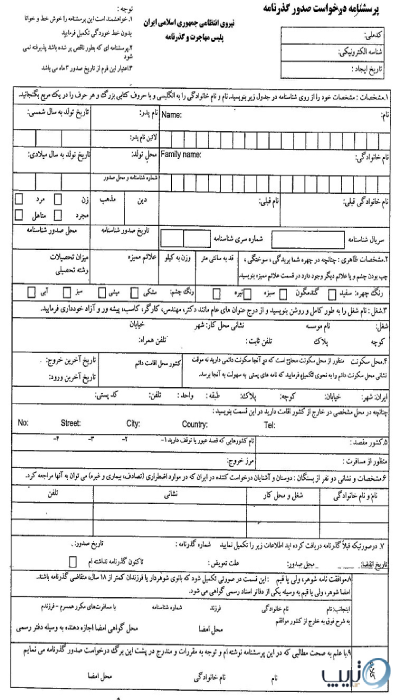 پرسشنامه درخواست صدور گذرنامه
نیروی انتظامی جمهوری اسلامی ایران
پلیس مهاجرت و گذرنامه
توجه :
۱.خواهشمند است این پرسشنامه را خوش خط و خوانا
بدون خط خوردگی تکمیل فرمایید
۲.پرسشنامه ای که بطور ناقص پر شده باشد پذیرفته نمی شود
۳.اعتبار این فرم از تاریخ صدور ۳ ماه می باشد
کدملی:
شناسه الکترونیکی:
تاریخ ایجاد :
۱.مشخصات : مشخصات خود را از روی شناسنامه در جدول زیر بنویسید. نام و نام خانوادگی را به انگلیسی و با حروف کتابی بزرگ و هر حرف را در یک مربع بگنجانید.
نام: Name: نام پدر: تاریخ تولد به سال شمسی:
لاتین نام پدر:
نام خانوادگی: Family name: محل تولد: تاریخ تولد به سال میلادی:
شماره شناسنامه و محل صدور
نام خانوادگی قبلی: نام قبلی: دین مذهب زن مرد
مجرد متاهل
سریال شناسنامه شماره سری شناسنامه تاریخ صدور شناسنامه محل صدور شناسنامه
۲.مشخصات ظاهری : چنانچه در چهره شما بریدگی ، سوختگی ،
چپ بودن چشم و یا علائم دیگر وجود دارد در قسمت علائم ممیزه بنویسید.
قد به سانتی متر وزن به کیلو علائم ممیزه میزان تحصیلات
رشته تحصیلی
رنگ چهره: سفید گندمگون سبزه تیره رنگ چشم: مشکی میشی سبز آبی
۳.شغل : نام شغل را به طور کامل و روشن بنویسید و از درج عنوان های عام مانند دکتر، مهندس، کارگر، کاسب، پیشه ور و آزاد خودداری فرمایید.
شغل: نام موسسه نشانی محل کار: شهر خیابان
کوچه پلاک تلفن ثابت : تلفن همراه:
۴.محل سکونت منظور از محل سکونت محلی است که در آنجا سکونت دائمی دارید نه موقت
نشانی محل سکونت دائم را به نحوی تکمیل فرمایید که نامه های پستی به سهولت به آنجا برسد.
کشور محل اقامت دائم
تاریخ آخرین خروج:
تاریخ آخرین ورود:
ایران: شهر: خیابان: کوچه: پلاک: طبقه : واحد : تلفن: کد پستی:
چنانچه در محل مشخصی در خارج از کشور اقامت دارید در این قسمت بنویسید:
No: Street: City: Country: Tel:
۵.کشور مقصد : نام کشورهایی که قصد عبور یا توقف دارید ۱- ۲- ۳- ۴-
منظور از مسافرت : مرز خروج:
۶.مشخصات و نشانی دو نفر از بستگان : دوستان و آشنایان درخواست کننده در ایران که در موارد اضطراری (تصادف، بیماری و غیره) می توان به آنها مراجعه کرد.
نام و نام خانوادگی شغل و محل کار نشانی تلفن
۷. درصورتیکه قبلاً گذرنامه دریافت کرده اید اطلاعات زیر را تکمیل نمایید شماره گذرنامه : تاریخ صدور:
تاریخ انقضا: محل صدور: علت تعویض : تاکنون گذرنامه نداشته ام
۸.موافقت نامه شوهر، ولی یا قیم : این قسمت در صورتی تکمیل شود که بانوی شوهردار یا فرزندان کمتر از ۱۸ سال، متقاضی گذرنامه باشند.
امضا شوهر، ولی یا قیم به وسیله یکی از دفاتر اسناد رسمی گواهی می شود.
اینجانب: نام نام خانوادگی فرزند شماره شناسنامه با مسافرت های مکرر همسرم - فرزندم
به شرح فوق به خارج از کشور موافقم محل امضا محل گواهی امضا اجازه دهنده به وسیله دفتر رسمی
۹.با علم به صحت مطالبی که در این پرسشنامه نوشته ام و توجه به مقررات و مندرج در پشت این برگ درخواست صدور گذرنامه می نمایم
نام نام خانوادگی امضا
تریپ